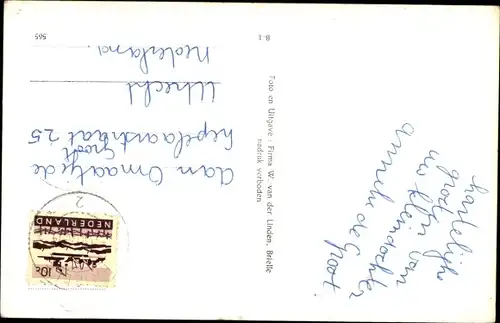 hartelijke
groeten van
uw kleindochter
Annelie de Groot.
Foto en Uitgave : Firma W. van der Linden, Brielle
nadruk verboden
B-1
565
Aan Omaatje de
Groot
hepelaanstraat 25
Utrecht
Nederland.
2
NEDERLAND
10c